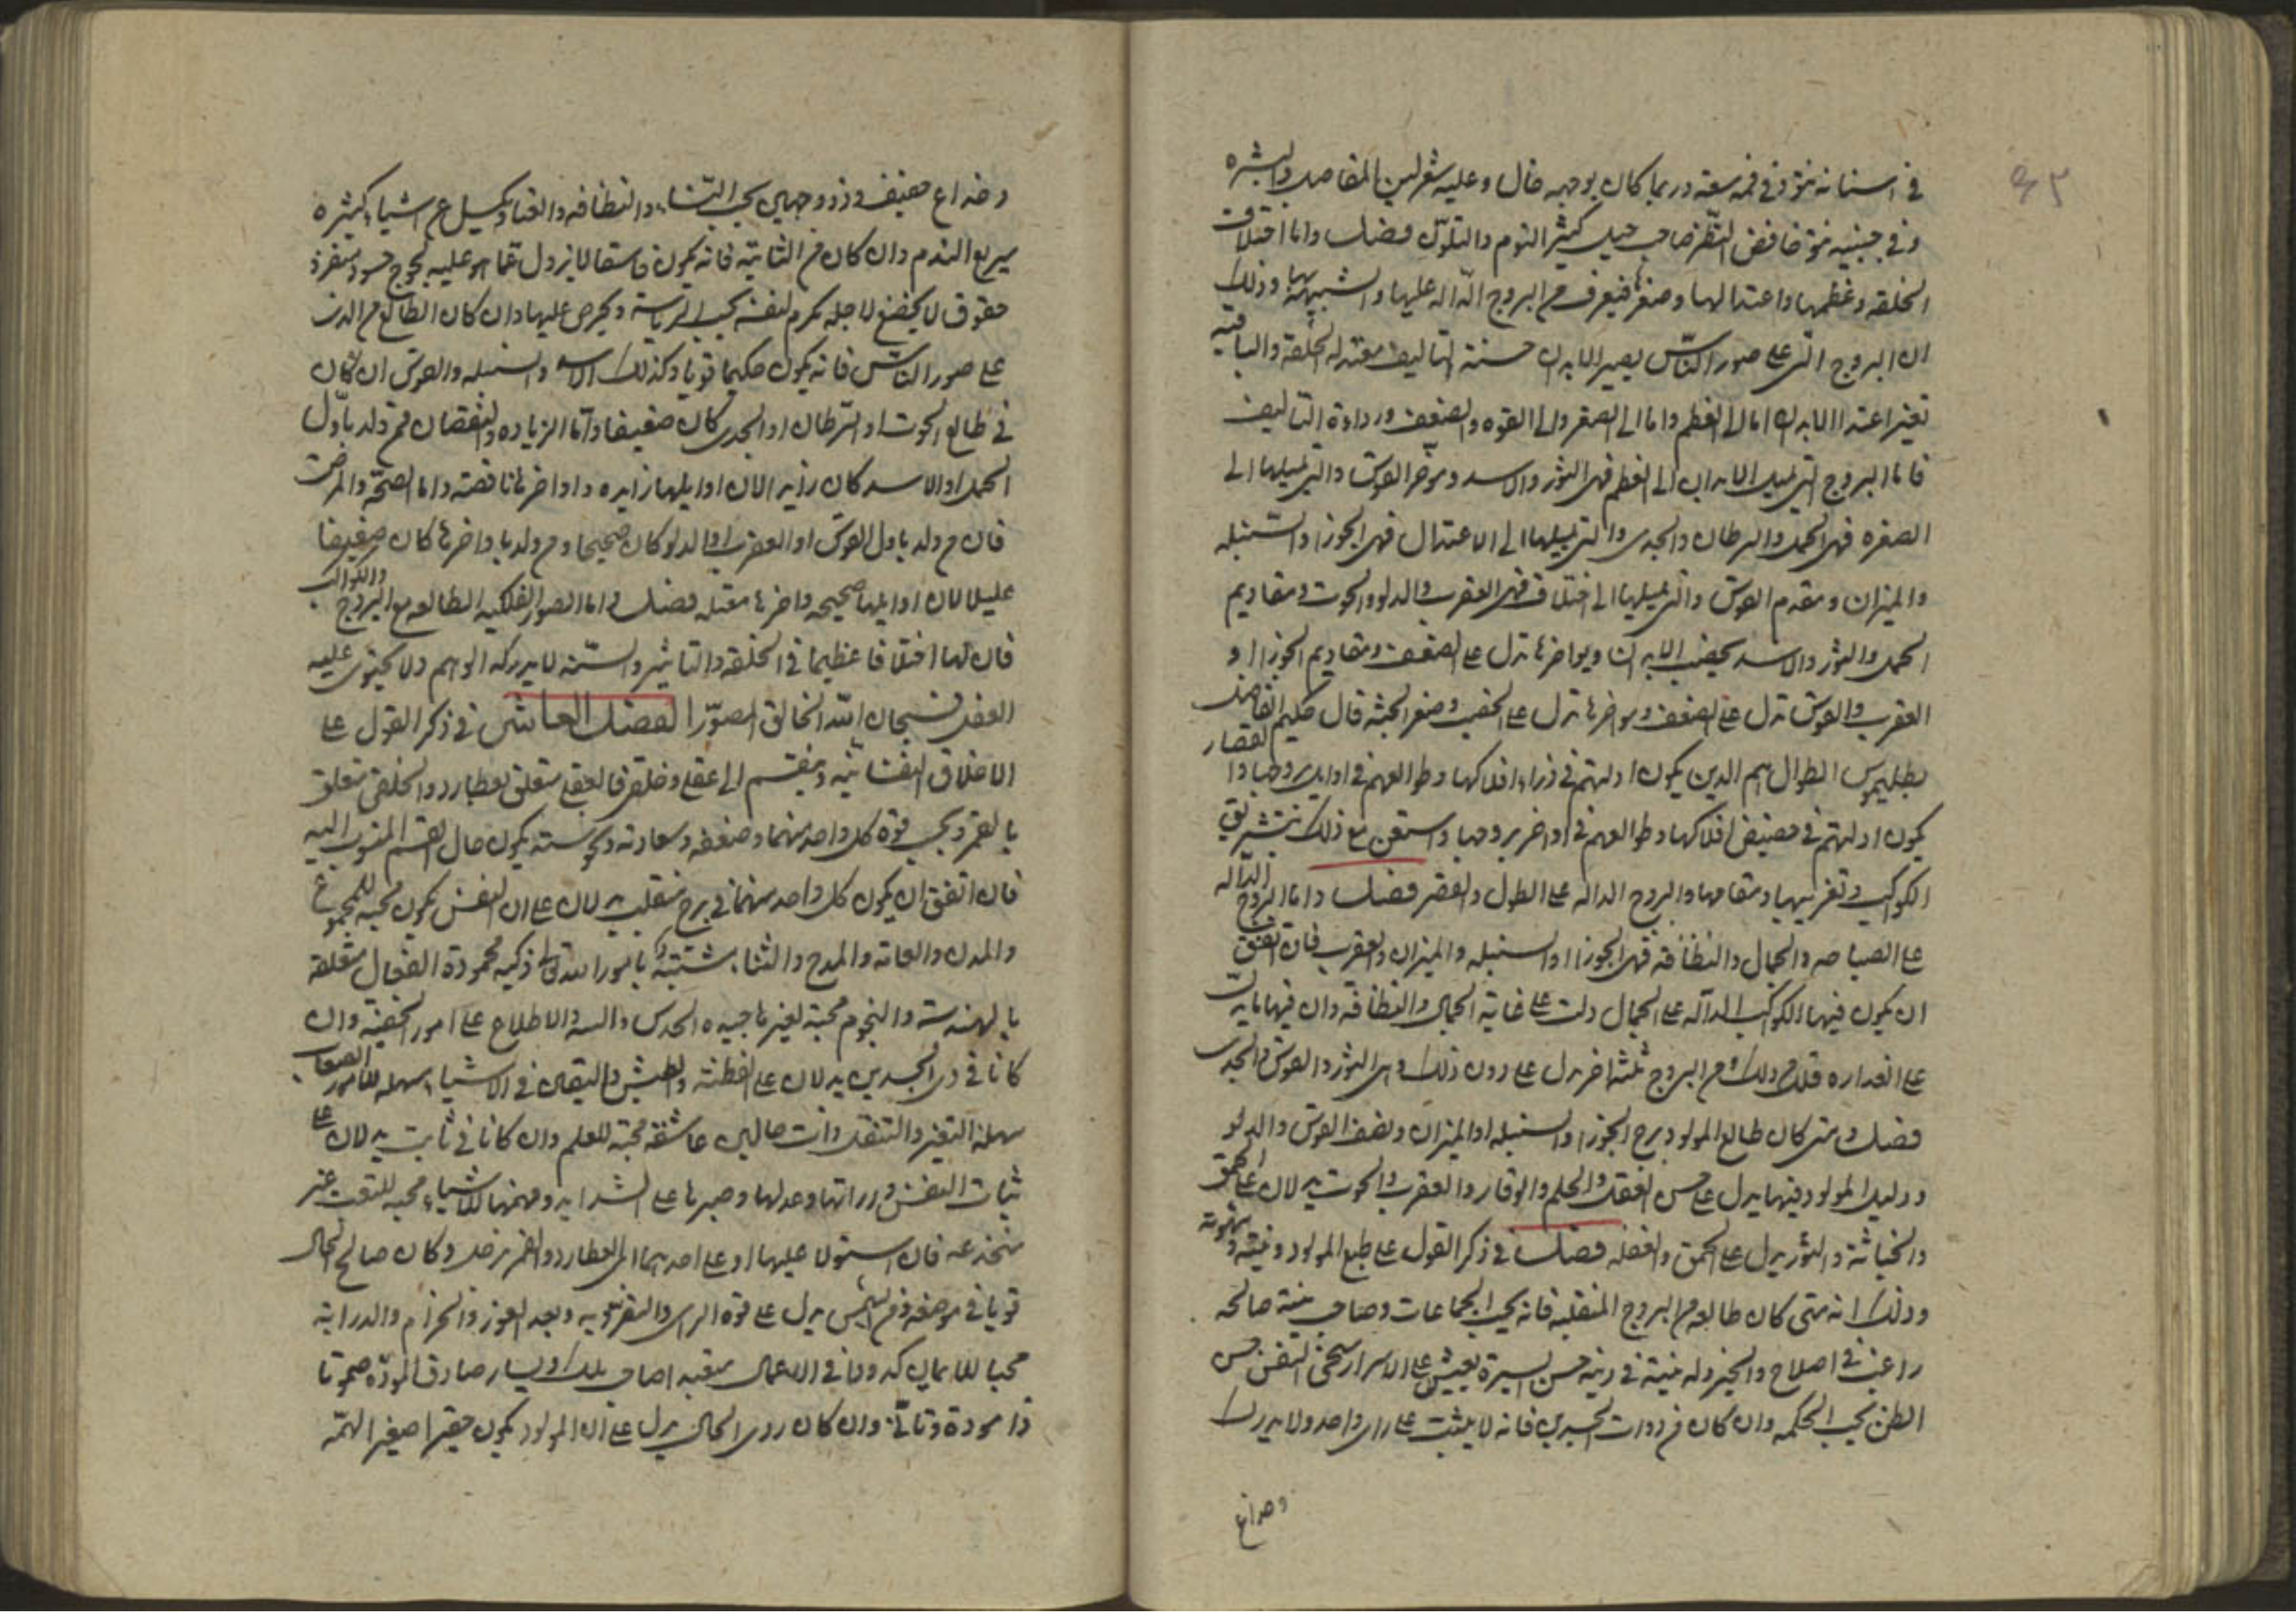 ٩٣
في اسنانه نتو وفي فمه سعة وربما كان بوجهه خال وعليه شعر لين المفاصل والبشره
وفي جبينه نتو خافض النظر صاحب حيل كثير النوم والتلون فصل واما اختلاف
الخلقه وعظمها واعتدالها وصغرها فيعرف من البروج الداله عليها والشبيهة بها وذلك
ان البروج التي على صور الناس يصير الابدان حسنة التاليف معتدله الخلقة والباقيه
تغير اعتدال الابدان اما الى العظم واما الى الصغر والى القوه والضعف ورداءة التاليف
فاما البروج التي تميل الابدان الى العظم فهى الثور والاسد وموخر القوس والتي تميلها الى
الصغره فهى الحمل والسرطان والجدى والتي تميلها الى الاعتدال فهى الجوزا والسنبله
والميزان ومقدم القوس والتي تميلها الى اختلاف فهى العقرب والدلو والحوت ومقاديم
الحمل والثور والاسد يخصب الابدان ومواخرها تدل على الضعف ومقاديم الجوزا و
العقرب والقوس تدل على الضعف ومواخرها تدل على الخصب وصغر الجثه قال حكيم الفاضل
بطليموس الطوال هم الذين يكون ادلتهم في ذرا افلاكها وطوالعهم في اوايل بروجها والقصار
يكون ادلتهم في حضيض افلاكها وطوالعهم في اواخر بروجها واستعن مع ذلك بتشريق
الكواكب وتغريبها ومقامها والبروج الداله على الطول والقصر فصل واما البروج الداله
على الصباحه والجمال والنظافة فهى الجوزا والسنبله والميزان والعقرب فان اتفق
ان يكون فيها الكواكب الداله على الجمال دلت على غاية الجمال والنظافة وان فيها ما يدل
على القداره فلك ذلك ومن البروج ثلثه اخر تدل على دون ذلك وهى الثور والقوس والجدى
فصل ومتى كان طالع المولود برج الجوزا والسنبله او الميزان ونصف القوس والدلو
ودليل المولود فيها يدل على حسن العقل والحلم والوقار والعقرب والحوت يدلان على الحمق
والخباثة والثور يدل على الحمق والغفله فصل في ذكر القول على طبع المولود ونيته وشهوته
وذلك انه متى كان طالعه من البروج المنقلبه فانه يحب الجماعات وصاحب نية صالحه
راغب في اصلاح والخير وله نية في دينه حسن السيرة يفتش على الاسرار سخى النفس حسن
الظن يحب الحكمه وان كان من ذوات الجسدين فانه لا يثبت على راى واحد ولا يدرك
وخداع
وخداع ضعيف وذو وجهين يحب الثناء والنظافه والغنا وكسل عن اشياء كثيره
سريع الندم وان كان من الثابتة فانه يكون فاسقا لا يزول عما هو عليه لجوج حسود متفرد
حقوق لا يخضع لاحد مكرم لنفسه يحب الرياسة ويحرص عليها وان كان الطالع من الذى
على صور الناس فانه يكون حكيما قويا وكذلك الاسد والسنبله والقوس ان كان
في طالع الحوت او السرطان او الجدى كان ضعيفا واما الزياده والنقصان فمن ولد باول
الحمل او الاسد كان زايدا لان اوايلها زايده واواخرها ناقصه واما الصحة والمرض
فان من ولد باول القوس او العقرب او الدلو كان صحيحا ومن ولد باواخرها كان ضعيفا
عليلا لان اوايلها صحيحه واخرها معتله فصل واما الصور الفلكيه الطالعه مع البروج والكواكب
فان لها اختلافا عظيما في الخلقة والتاثير والسمة لا يدركه الوهم ولا يحتوى عليه
العقل فسبحان الله الخالق المصور الفصل العاشر في ذكر القول على
الاخلاق النفسانيه وينقسم الى عقلى وخلقى فالعقلى متعلق بعطارد والخلقى متعلق
بالقمر وبحسب قوة كل واحد منهما وضعفه وسعادته ونحوسته يكون حال القسم المنسوب اليه
فان اتفق ان يكون كل واحد منهما في برج منقلب يدلان على ان النفس يكون محبه للجموع
والمدن والعامه والمدح والثناء متشبثة بامور الله تعالى ذكيه محمودة الفعال متعلقه
بالهندسه والنجوم محبة لغير ناجيه الحدس والسنة والاطلاع على امور الخفيه وان
كانا في ذى الجسدين يدلان على الفطنه والطيش والتقلب في الاشياء سهله للامور الصعاب
سهله التغير والتنقل ذات حالين عاشقه محبة للعلم وان كانا في ثابت يدلان على
ثبات النفس ودرايتها وعدلها وصبرها على الشدايد وفهمها للاشياء محبه للتعب غير
منخدعه فان استولى عليها او على احدهما اى العطارد والقمر زحل وكان صالح الحال
قويا في موضعه ومن الشمس يدل على قوة الراى والتفرد به وبعد الغور والحزم والدراية
محبا للمال كدودا في الاعمال متعبه اصاحب بلد او يسار صادق الموده صموتا
ذا مودة وتانى وان كان ردى الحال يدل على ان المولود يكون حقيرا صغير الهمه